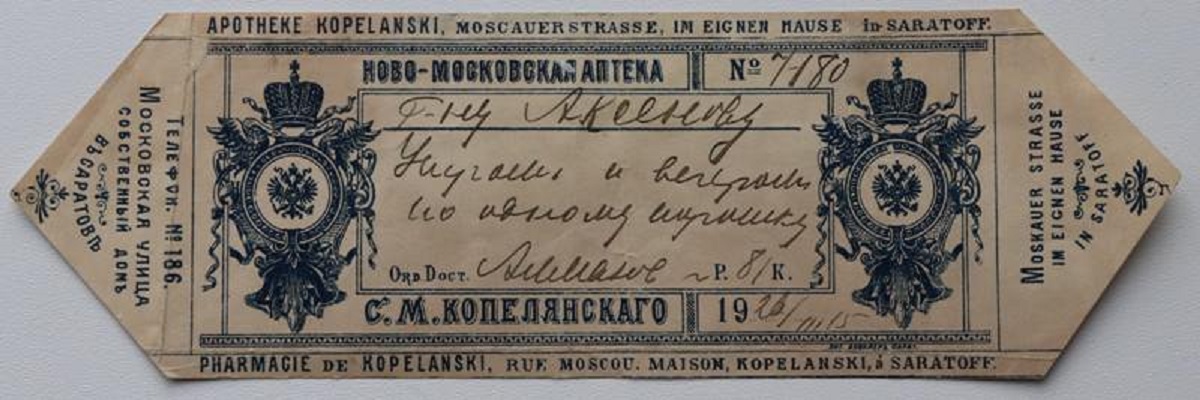 APOTHEKE KOPELANSKI, MOSCAUERSTRASSE, IM EIGNEN HAUSE in SARATOFF.
НОВО-МОСКОВСКАЯ АПТЕКА
№ 7180
Г-ну Аксенову
Утром и вечером
по одному порошку
ORD DOCT.
Р. 81 К.
С. М. КОПЕЛЯНСКАГО
19
PHARMACIE DE KOPELANSKI, RUE MOSCOU. MAISON, KOPELANSKI, à SARATOFF.
ТЕЛЕФОН. №186.
МОСКОВСКАЯ УЛИЦА
СОБСТВЕННЫЙ ДОМЪ
ВЪ САРАТОВѢ
MOSKAUER STRASSE
IM EIGNEN HAUSE
IN SARATOFF